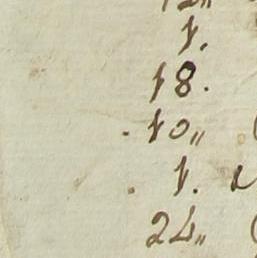 1.
18.
10„
1.
24„